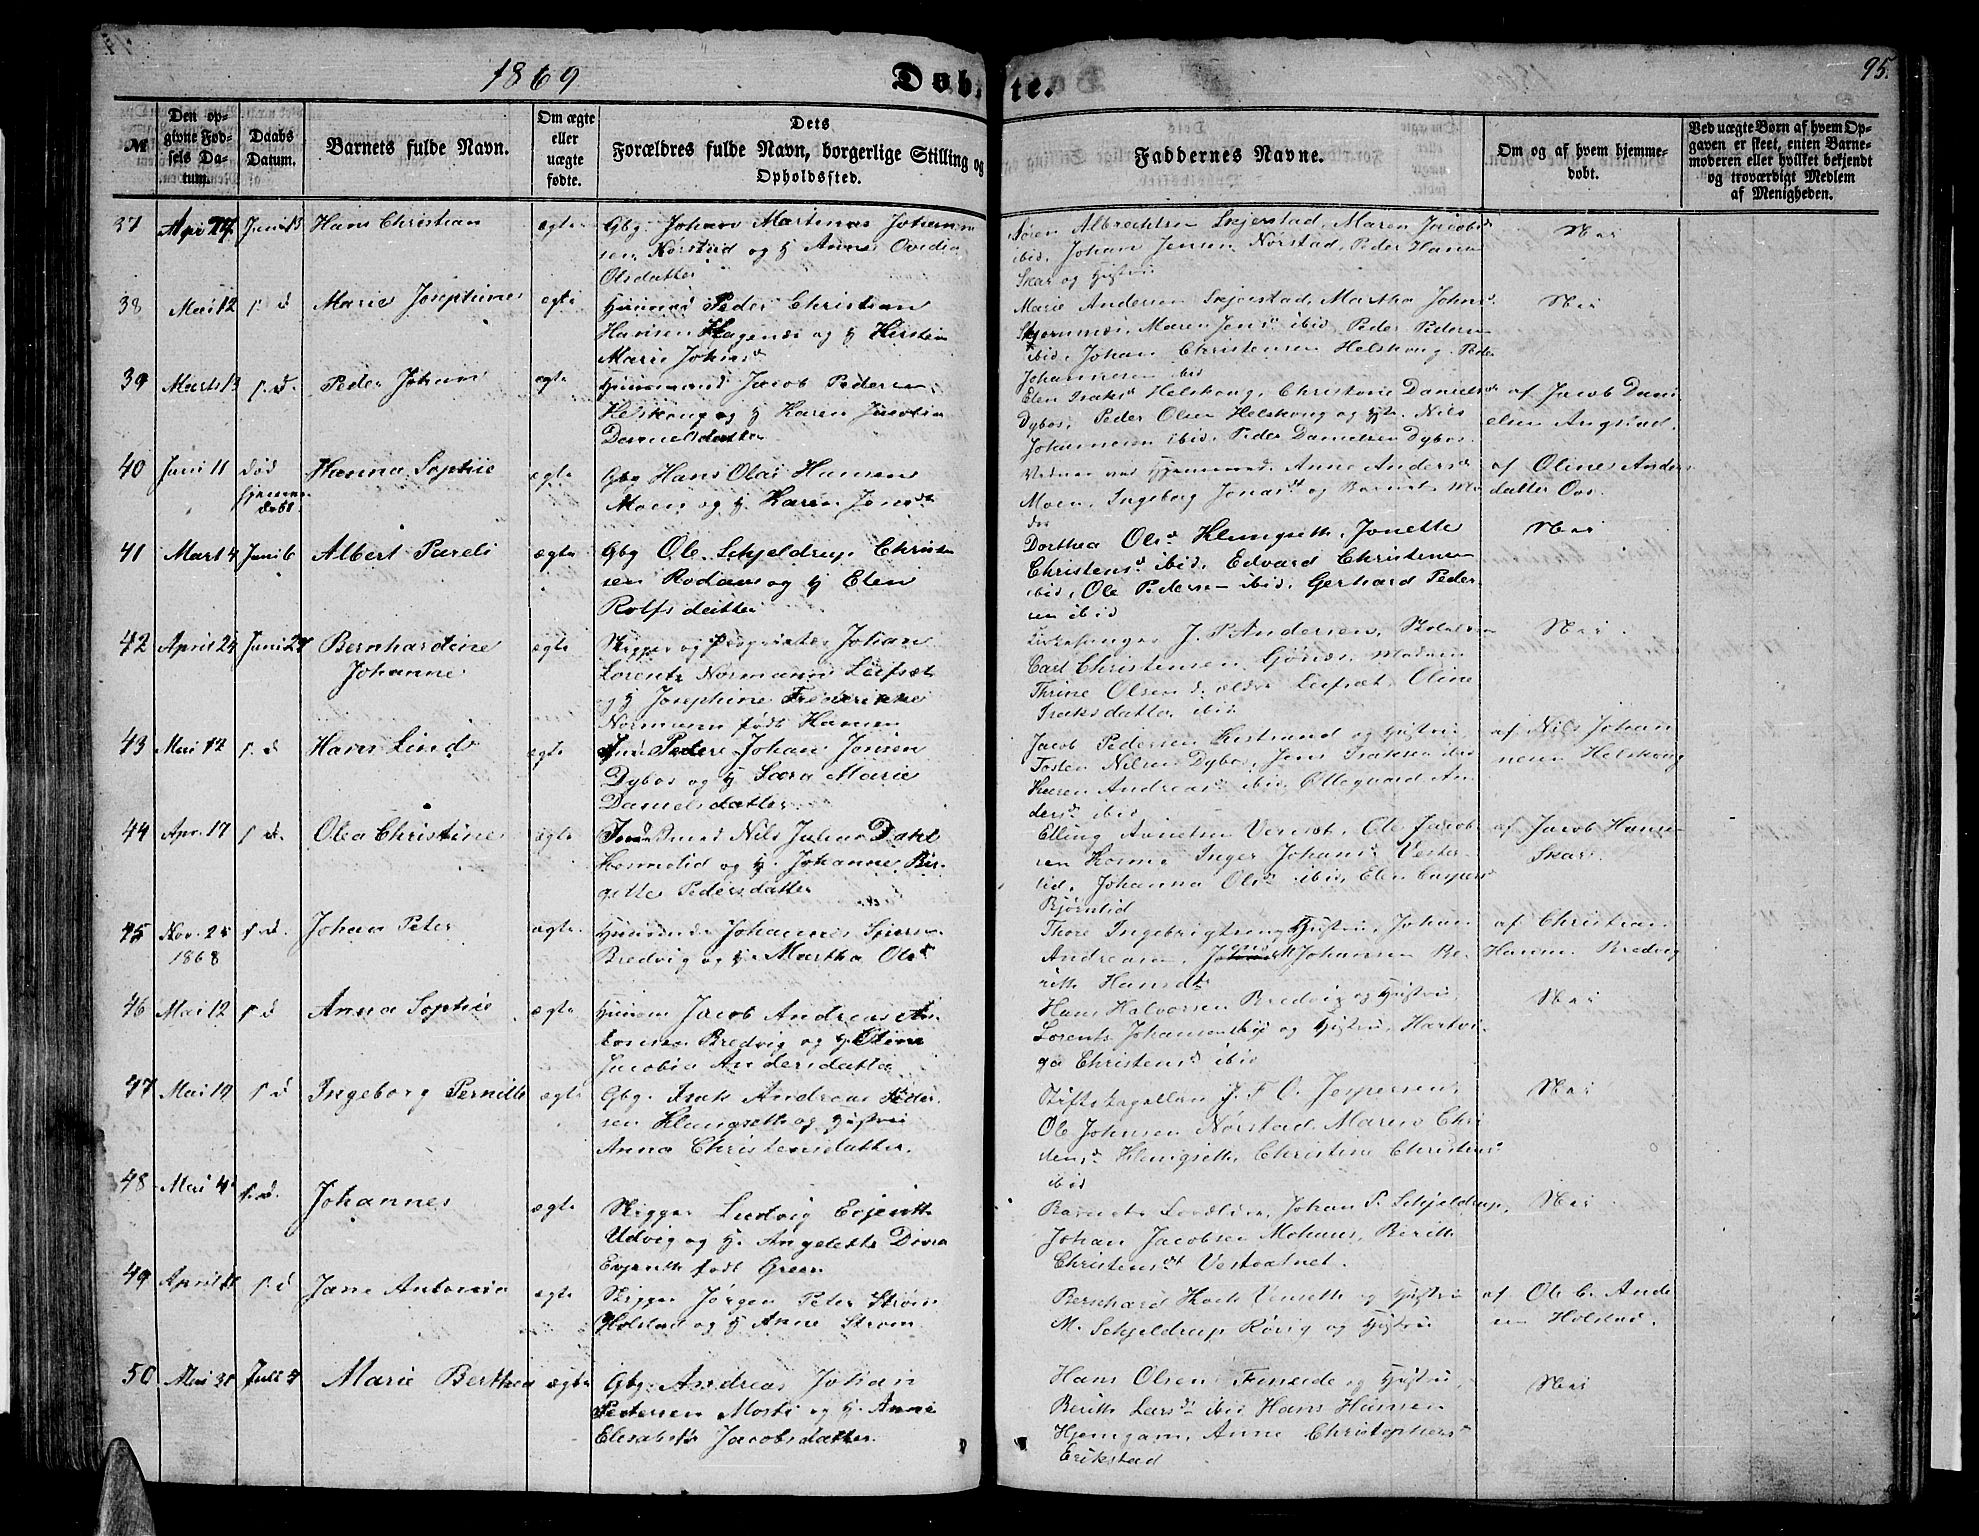 1869
Døbte.
95.
No
Den opgivne Fødsels Datum.
Daabs Datum.
Barnets fulde Navn.
Om ægte eller uægte fødte.
Dets Forældres fulde Navn, borgerlige Stilling og Opholdssted.
Faddernes Navne.
Om og af hvem hjemmedøbt.
Ved uægte Børn af hvem Opgaven er skeet, enten Barnemoderen eller hvilket bekjendt og troværdigt Medlem af Menigheden.
37 Hans Christian ægte Gbg. Johan Martinus Johannes
sen Nørstad og H Anne Ovedia
Olsdatter
Søren Albrechtsen Skjerstad, Maren Jacobsd
ibid, Johan Jensen Nørstad, Peder Hansen
Skar og Hustru
Nei
38 Mai 12 s. d Marie Josephine ægte Huusmd Peder Christian
Hansen Hagenæs og H Kirsten
Marie Johnsd
Marie Andersen Skjerstad, Martha Johnsd
Skjernnæs, Maren Jensd ibid, Peder Pedersen
ibid, Johan Christensen Helskong, Peder
Johannesen ibid
Nei
39 Marts 13 s. d. Peder Johan ægte Huusmand Jacob Pedersen
Helskong og H Karen Jacobia
Danielsdatter
Elen Isaksd Helskong, Christine Danielsd
Dybos, Peder Olsen Helskong og Hustr. Nils
Johannesen ibid, Peder Danielsen Dybos
af Jacob Dani
elsen Angstad.
40 Juni 11 død
hjemme
døbt. Hanna Sophie ægte Gbg Hans Olai Hansen
Moen og H. Karen Jensdt
Vidner ved Anne Andersd
Moen, Ingeborg Jonasdt og Barnets Mo
der
af Oline Anders
datter Ovs.
41 Mart 4 Juni 6 Albert Pareli ægte Gbg Ole Schjeldrup Christen
sen Rodaas og H Elen
Rolfsdatter
Dorthea Olsd Klungseth, Jonette
Christensd ibid, Edvard Christensen
ibid, Ole Pedersen ibid, Gerhard Peder
sen ibid
Nei
42 April 24 Juni 27 Bernhardine
Johanne ægte Skipper og Johan
Lorents Normann Leifset
og H Josephine Frederikke
Normann født Hansen
Kirkesanger J. P. Andersen,
Carl Christensen Gjønæs, Madam
Thrine Olsen d. ældre Leifset, Oline
Isaksdatter ibid
Nei
43 Mai 12 s. d Hans Lind ægte Peder Johan Jensen
Dybos og H Sara Marie
Danielsdatter
Jacob Pedersen og Hustru,
Tosten Nilsen Dybos, Jens Isaksen ibid
Karen Andreasd ibid, Ollegaard An
dersd ibid
af Nils Johan
nesen Helskong
44 Apr. 17 s. d. Olea Christine ægte Nils Julius Dahl
Kosmolid og H. Johanne Bir
gitte Pedersdatter
Elling Arnetsen Venset, Ole Jacob
sen Kosmo Inger Johansd Vester
lid, Johanna Olsd ibid, Elen Caspersd
Bjørnlid
af Jacob Hanse
Skar.
45 Nov. 25
1868 s. d. Johan Peter ægte Johannes
Bredvig og H. Martha Olsd
Thore Ingebrigtsen og Hustru, Johan
Andreasen, Johansen Be
rith Hansdt
af Christian
Hansen Bredvig
46 Mai 12 s. d Anna Sophie ægte Huusm Jacob Andreas An
tonsen Bredvig og H. Oline
Jacobia Andersdatter
Hans Halvorsen Bredvig og Hustru,
Lorents Johansen ibid og Hustru, Hartvi
ga Christensd ibid
Nei
47 Mai 19 s. d Ingeborg Pernille ægte Gbg. Isak Andreas Peder
sen Klungseth og Hustru
Anna Christensdatter.
Stiftskapellan J. F. O. Jespersen,
Ole Johnsen Nørstad, Maren Chri
stensd Klungseth, Christine Christensd
ibid
Nei
48 Mai 4 s. d. Johannes ægte Skipper Ludvig Evjenth
Udvig og H. Angelette Dorea
Evjenth født Green
Barnets Forældre, Johan P. Schjeldrup,
Johan Jacobsen Mohus, Berith
Christensdt Vestvatnet.
Nei
49 April s. d Jane Antonia ægte Skipper Jørgen Peter Strøm
Holstad og H Anne Strøm
Bernhard Koch Venseth og Hustru
M. Schjeldrup Røvig og Hustru
af Ole C. Ande
sen Holstad.
50 Mai 31 Juli 4 Marie Berthea ægte Gbg. Andreas Johan
Pedersen Mosti og H. Anne
Elisabeth Jacobsdatter.
Hans Olsen Fineide og Hustru,
Berith Larsd ibid Hans Hansen
Hjemgam, Anne Christophersd
Erikstad
Nei